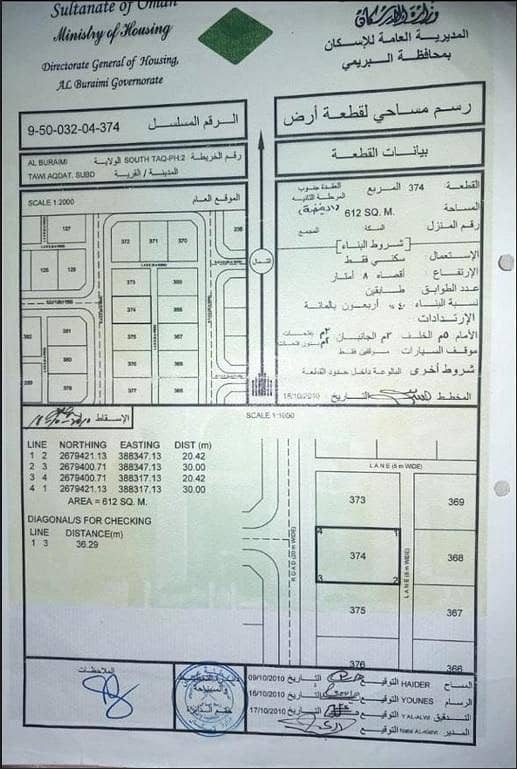 Sultanate of Oman
Ministry of Housing
Directorate General of Housing,
AL Buraimi Governorate
وزارة الإسكان
المديرية العامة للإسكان
بمحافظة البريمي
9-50-032-04-374
الرقم المسلسل
رسم مساحي لقطعة أرض
AL BURAIMI الولاية SOUTH TAQ-PH:2 رقم الخريطة
TAWI AQDAT. SUBD المدينة / القرية
بيانات القطعة
SCALE 1:2000
الموقع العام
القطعة 374 المربع
العقدة جنوب
المرحلة الثانية
المساحة 612 SQ. M.
رقم المنزل السكة المجمع
[شروط البناء]
الإستعمال: سكني فقط
الإرتفاع: أقصاه ٨ أمتار
عدد الطوابق طابقين
نسبة البناء ٤٠٪ أربعون بالمائة
الإرتدادات:
الأمام ٥م الخلف ٣م الجانبان
موقف السيارات موقفين فقط
شروط أخرى البالوعة داخل حدود القطعة
المخطط التاريخ 15/10/2010
127
238
372
371
370
128
126
373
369
374
368
الشمال
382
381
375
367
383
380
376
366
389
378
377
365
SCALE 1:1000
الإسقاط
LINE NORTHING EASTING DIST (m)
1 2 2679421.13 388347.13 20.42
2 3 2679400.71 388347.13 30.00
3 4 2679400.71 388317.13 20.42
4 1 2679421.13 388317.13 30.00
AREA = 612 SQ. M.
DIAGONAL/S FOR CHECKING
LINE DISTANCE(m)
1 3 36.29
LANE (6 m WIDE)
373
369
4
1
374
368
3
2
ROAD (20 m WIDE)
LANE (6 m WIDE)
375
367
376
366
الملاحظات
المساح HAIDER التوقيع التاريخ 09/10/2010
الرسام YOUNES التوقيع التاريخ 16/10/2010
التدقيق Y AL-ALWI التوقيع التاريخ 17/10/2010
المدير التوقيع